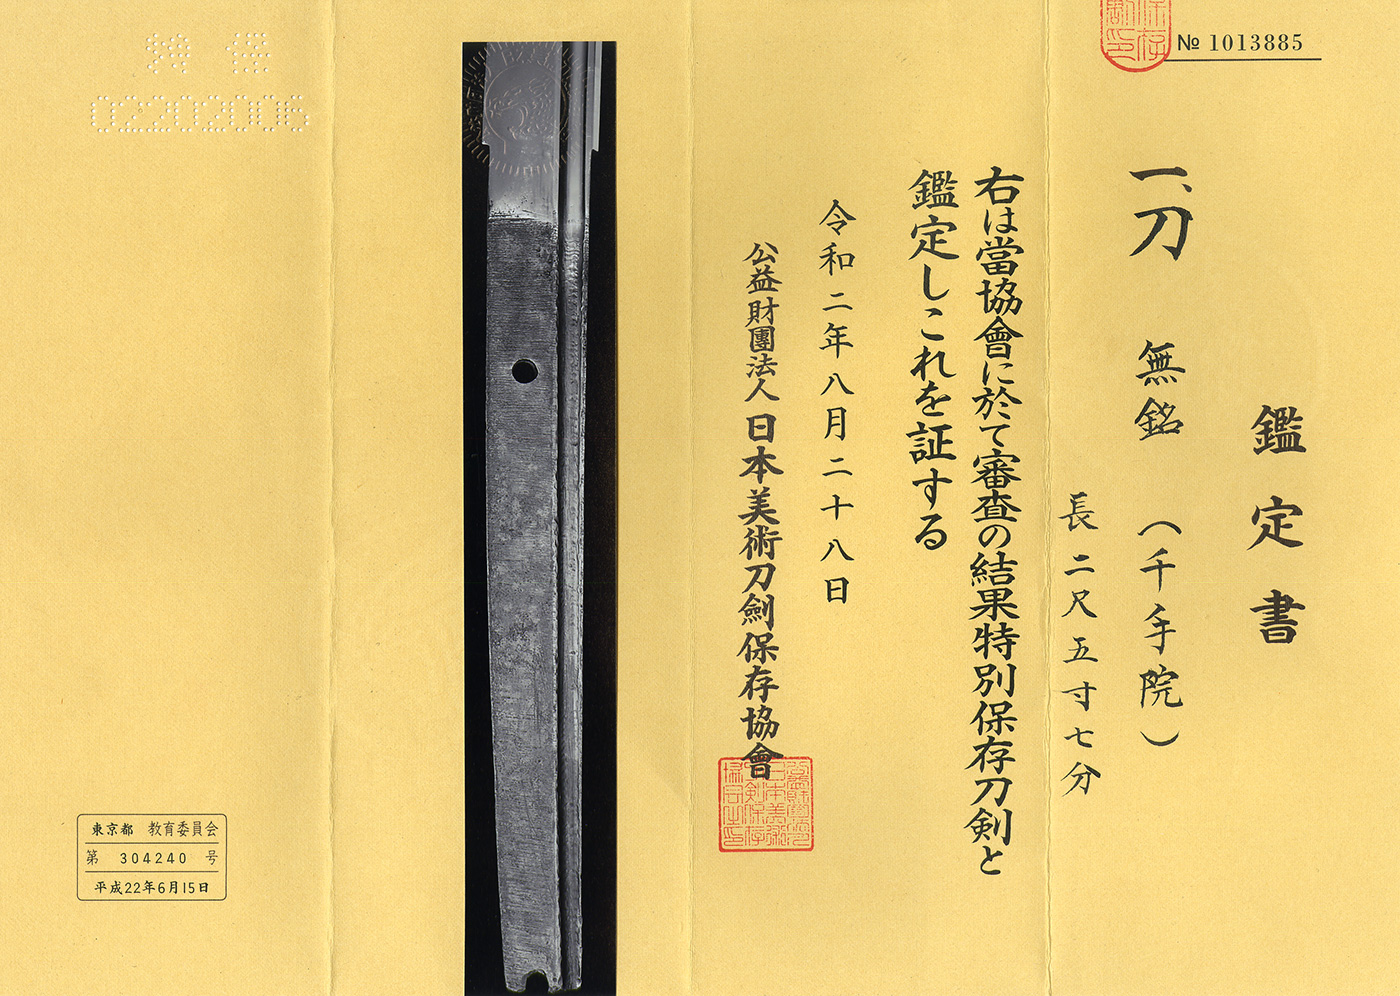 № 1013885
鑑定書
一、刀 無銘 (千手院)
長二尺五寸七分
右は當協會に於て審査の結果特別保存刀剣と
鑑定しこれを証する
令和二年八月二十八日
公益財團法人日本美術刀劍保存協會
特保
02202006
東京都 教育委員会
第 304240 号
平成22年6月15日